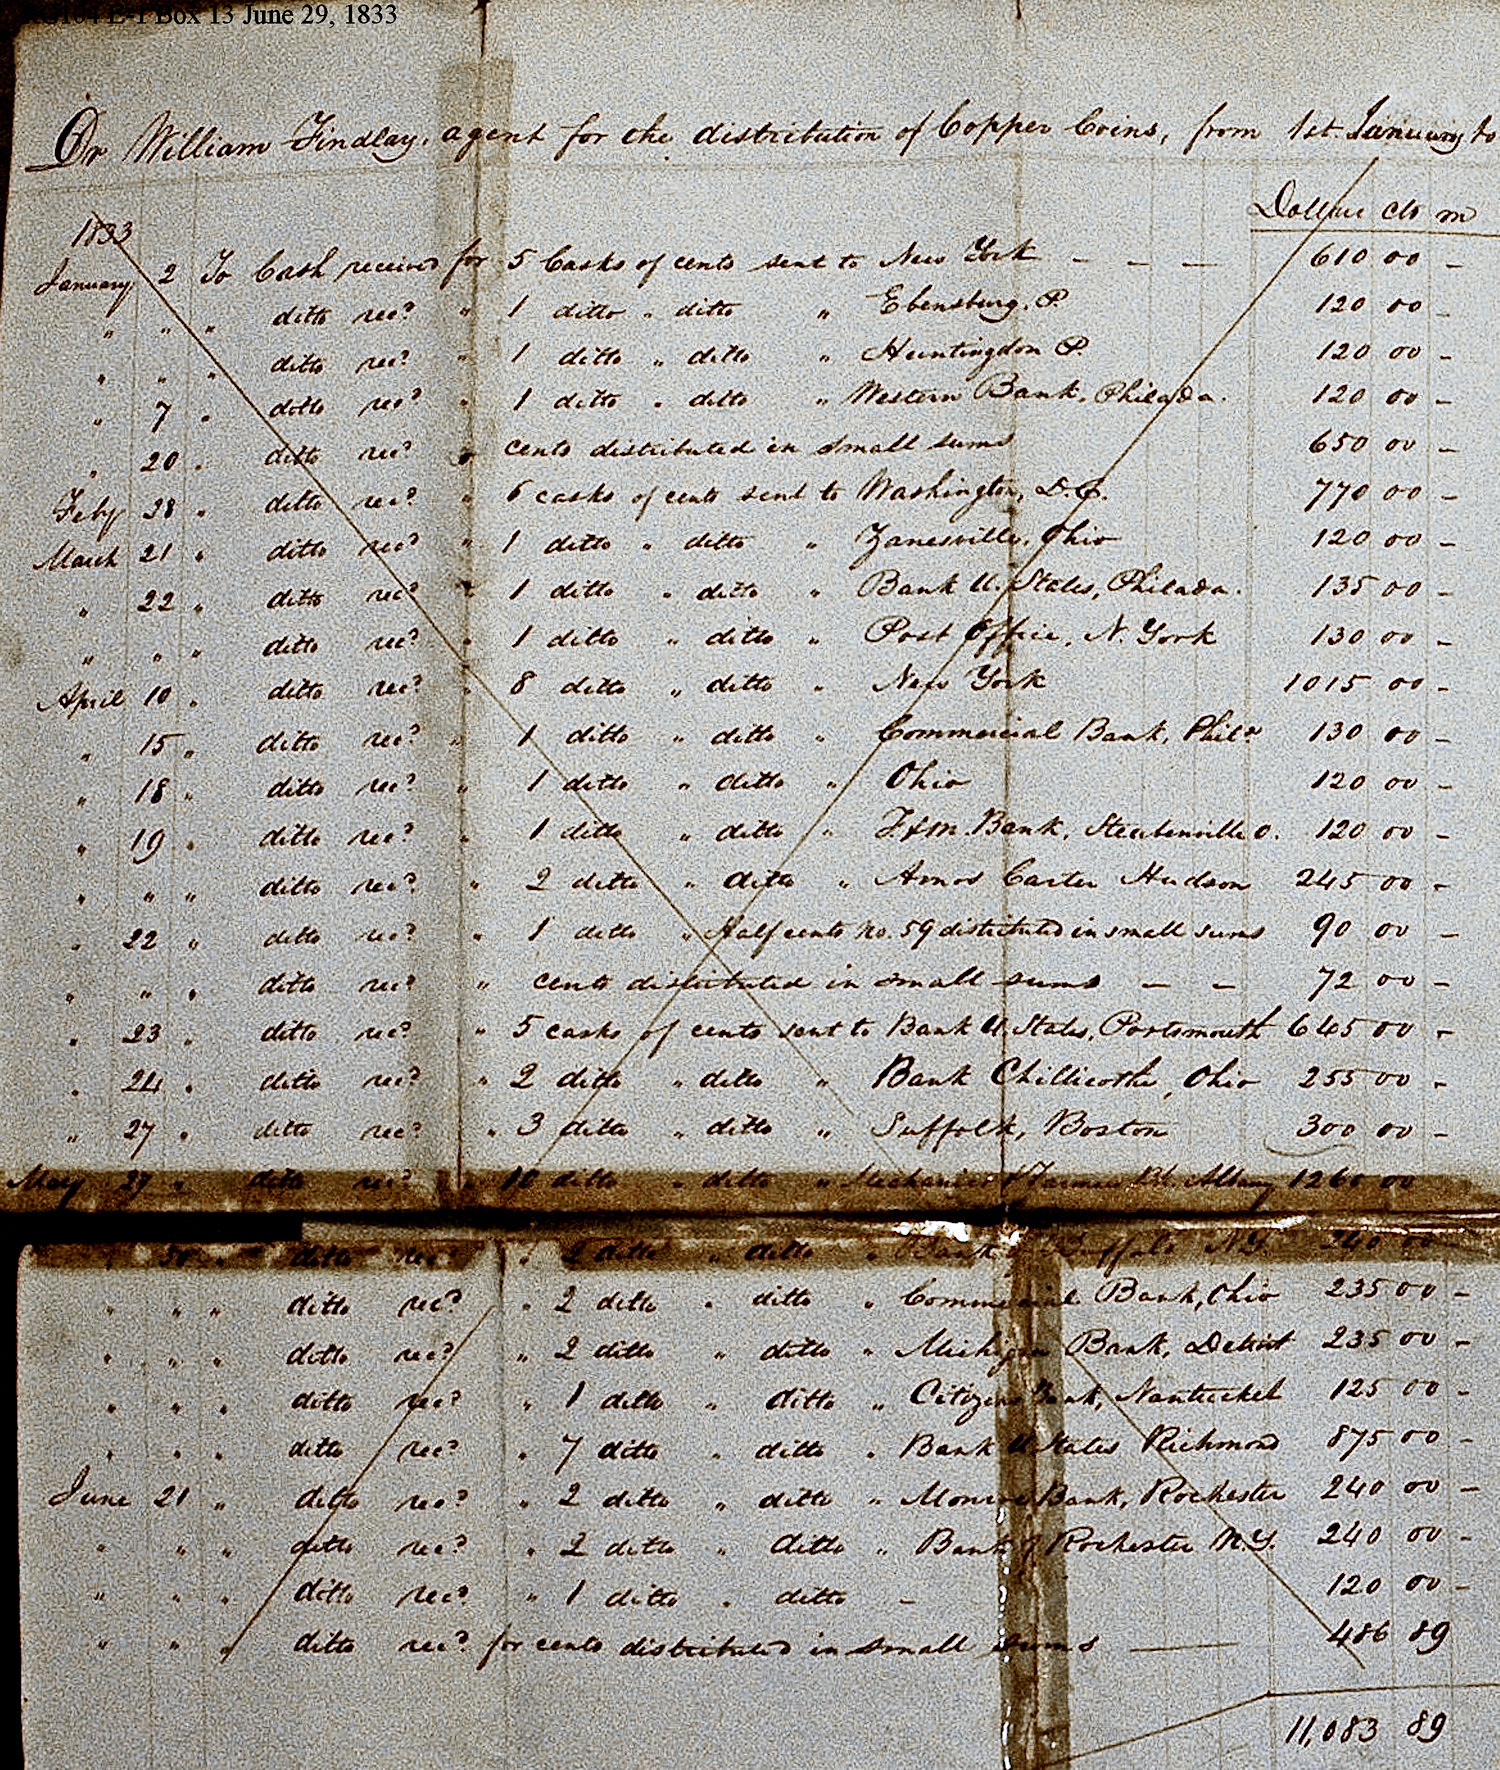 RG104 E-1 Box 13 June 29, 1833
Dr William Findlay, agent for the distribution of Copper Coins, from 1st January to
Dollars cts m
1833
January 2 To Cash received for 5 Casks of cents sent to New York - - - 610 00 -
" " " ditto rec? " 1 ditto " ditto " Ebensburg, P. 120 00 -
" " " ditto rec? " 1 ditto " ditto " Huntingdon P. 120 00 -
" 7 " ditto rec? " 1 ditto " ditto " Western Bank, Philada. 120 00 -
" 20 " ditto rec? " cents distributed in small sums 650 00 -
Feby 28 " ditto rec? " 6 casks of cents sent to Washington, D.C. 770 00 -
March 21 " ditto rec? " 1 ditto " ditto " Zanesville, Ohio 120 00 -
" 22 " ditto rec? " 1 ditto " ditto " Bank U. States, Philada. 135 00 -
" " " ditto rec? " 1 ditto " ditto " Post Office, N. York 130 00 -
April 10 " ditto rec? " 8 ditto " ditto " New York 1015 00 -
" 15 " ditto rec? " 1 ditto " ditto " Commercial Bank, Phila 130 00 -
" 18 " ditto rec? " 1 ditto " ditto " Ohio 120 00 -
" 19 " ditto rec? " 1 ditto " ditto " F&M. Bank, Steubenville O. 120 00 -
" " " ditto rec? " 2 ditto " ditto " Amos Carter Hudson 245 00 -
" 22 " ditto rec? " 1 ditto " Half cents No. 59 distributed in small sums 90 00 -
" " " ditto rec? " cents distributed in small sums - - 72 00 -
" 23 " ditto rec? " 5 casks of cents sent to Bank U. States, Portsmouth 645 00 -
" 24 " ditto rec? " 2 ditto " ditto " Bank Chillicothe, Ohio 255 00 -
" 27 " ditto rec? " 3 ditto " ditto " Suffolk, Boston 300 00 -
May 27 " ditto rec? " 10 ditto " ditto " Mechanics & Farmers Bk. Albany 1260 00
" 30 " ditto rec? " 2 ditto " ditto " Bank of Buffalo N.Y. 240 00 -
" " " ditto rec? " 2 ditto " ditto " Commercial Bank, Ohio 235 00 -
" " " ditto rec? " 2 ditto " ditto " Michigan Bank, Detroit 235 00 -
" " " ditto rec? " 1 ditto " ditto " Citizens Bank, Nantucket 125 00 -
" " " ditto rec? " 7 ditto " ditto " Bank U States Richmond 875 00 -
June 21 " ditto rec? " 2 ditto " ditto " Monroe Bank, Rochester 240 00 -
" " " ditto rec? " 2 ditto " ditto " Bank of Rochester N.Y. 240 00 -
" " " ditto rec? " 1 ditto " ditto - 120 00 -
" " " ditto rec? for cents distributed in small sums - 486 89
11,083 89